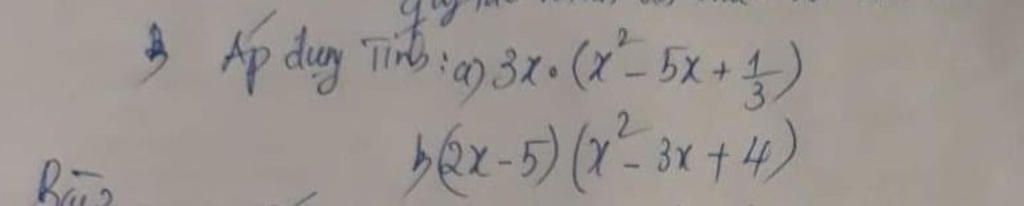 Áp dụng Tính: a) 3x . (x² - 5x + 1/3)
b) (2x - 5) (x² - 3x + 4)
Bài 2